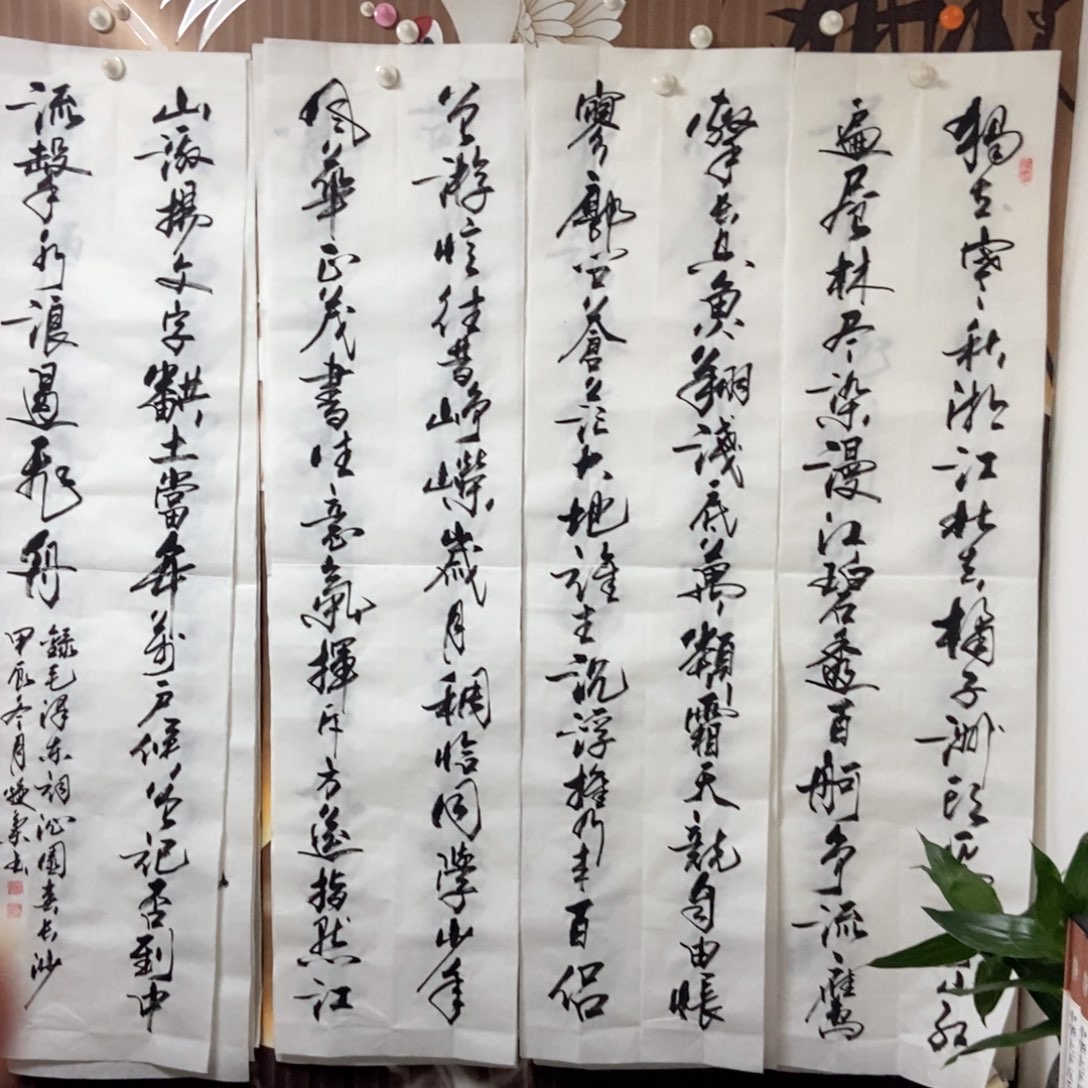 獨立寒秋湘江北去橘子洲头山红
遍层林尽染漫江碧透百舸争流鷹
擊长空鱼翔淺底萬類霜天競自由悵
寥廓问蒼茫大地誰主沉浮携来百侣
曾游忆往昔峥嶸歲月稠恰同學少年
风華正茂書生意氣揮斥方遒指点江
山激揚文字糞土當年萬户侯曾记否到中
流擊水浪遏飛舟
錄毛泽东词沁園春长沙
甲辰冬月书